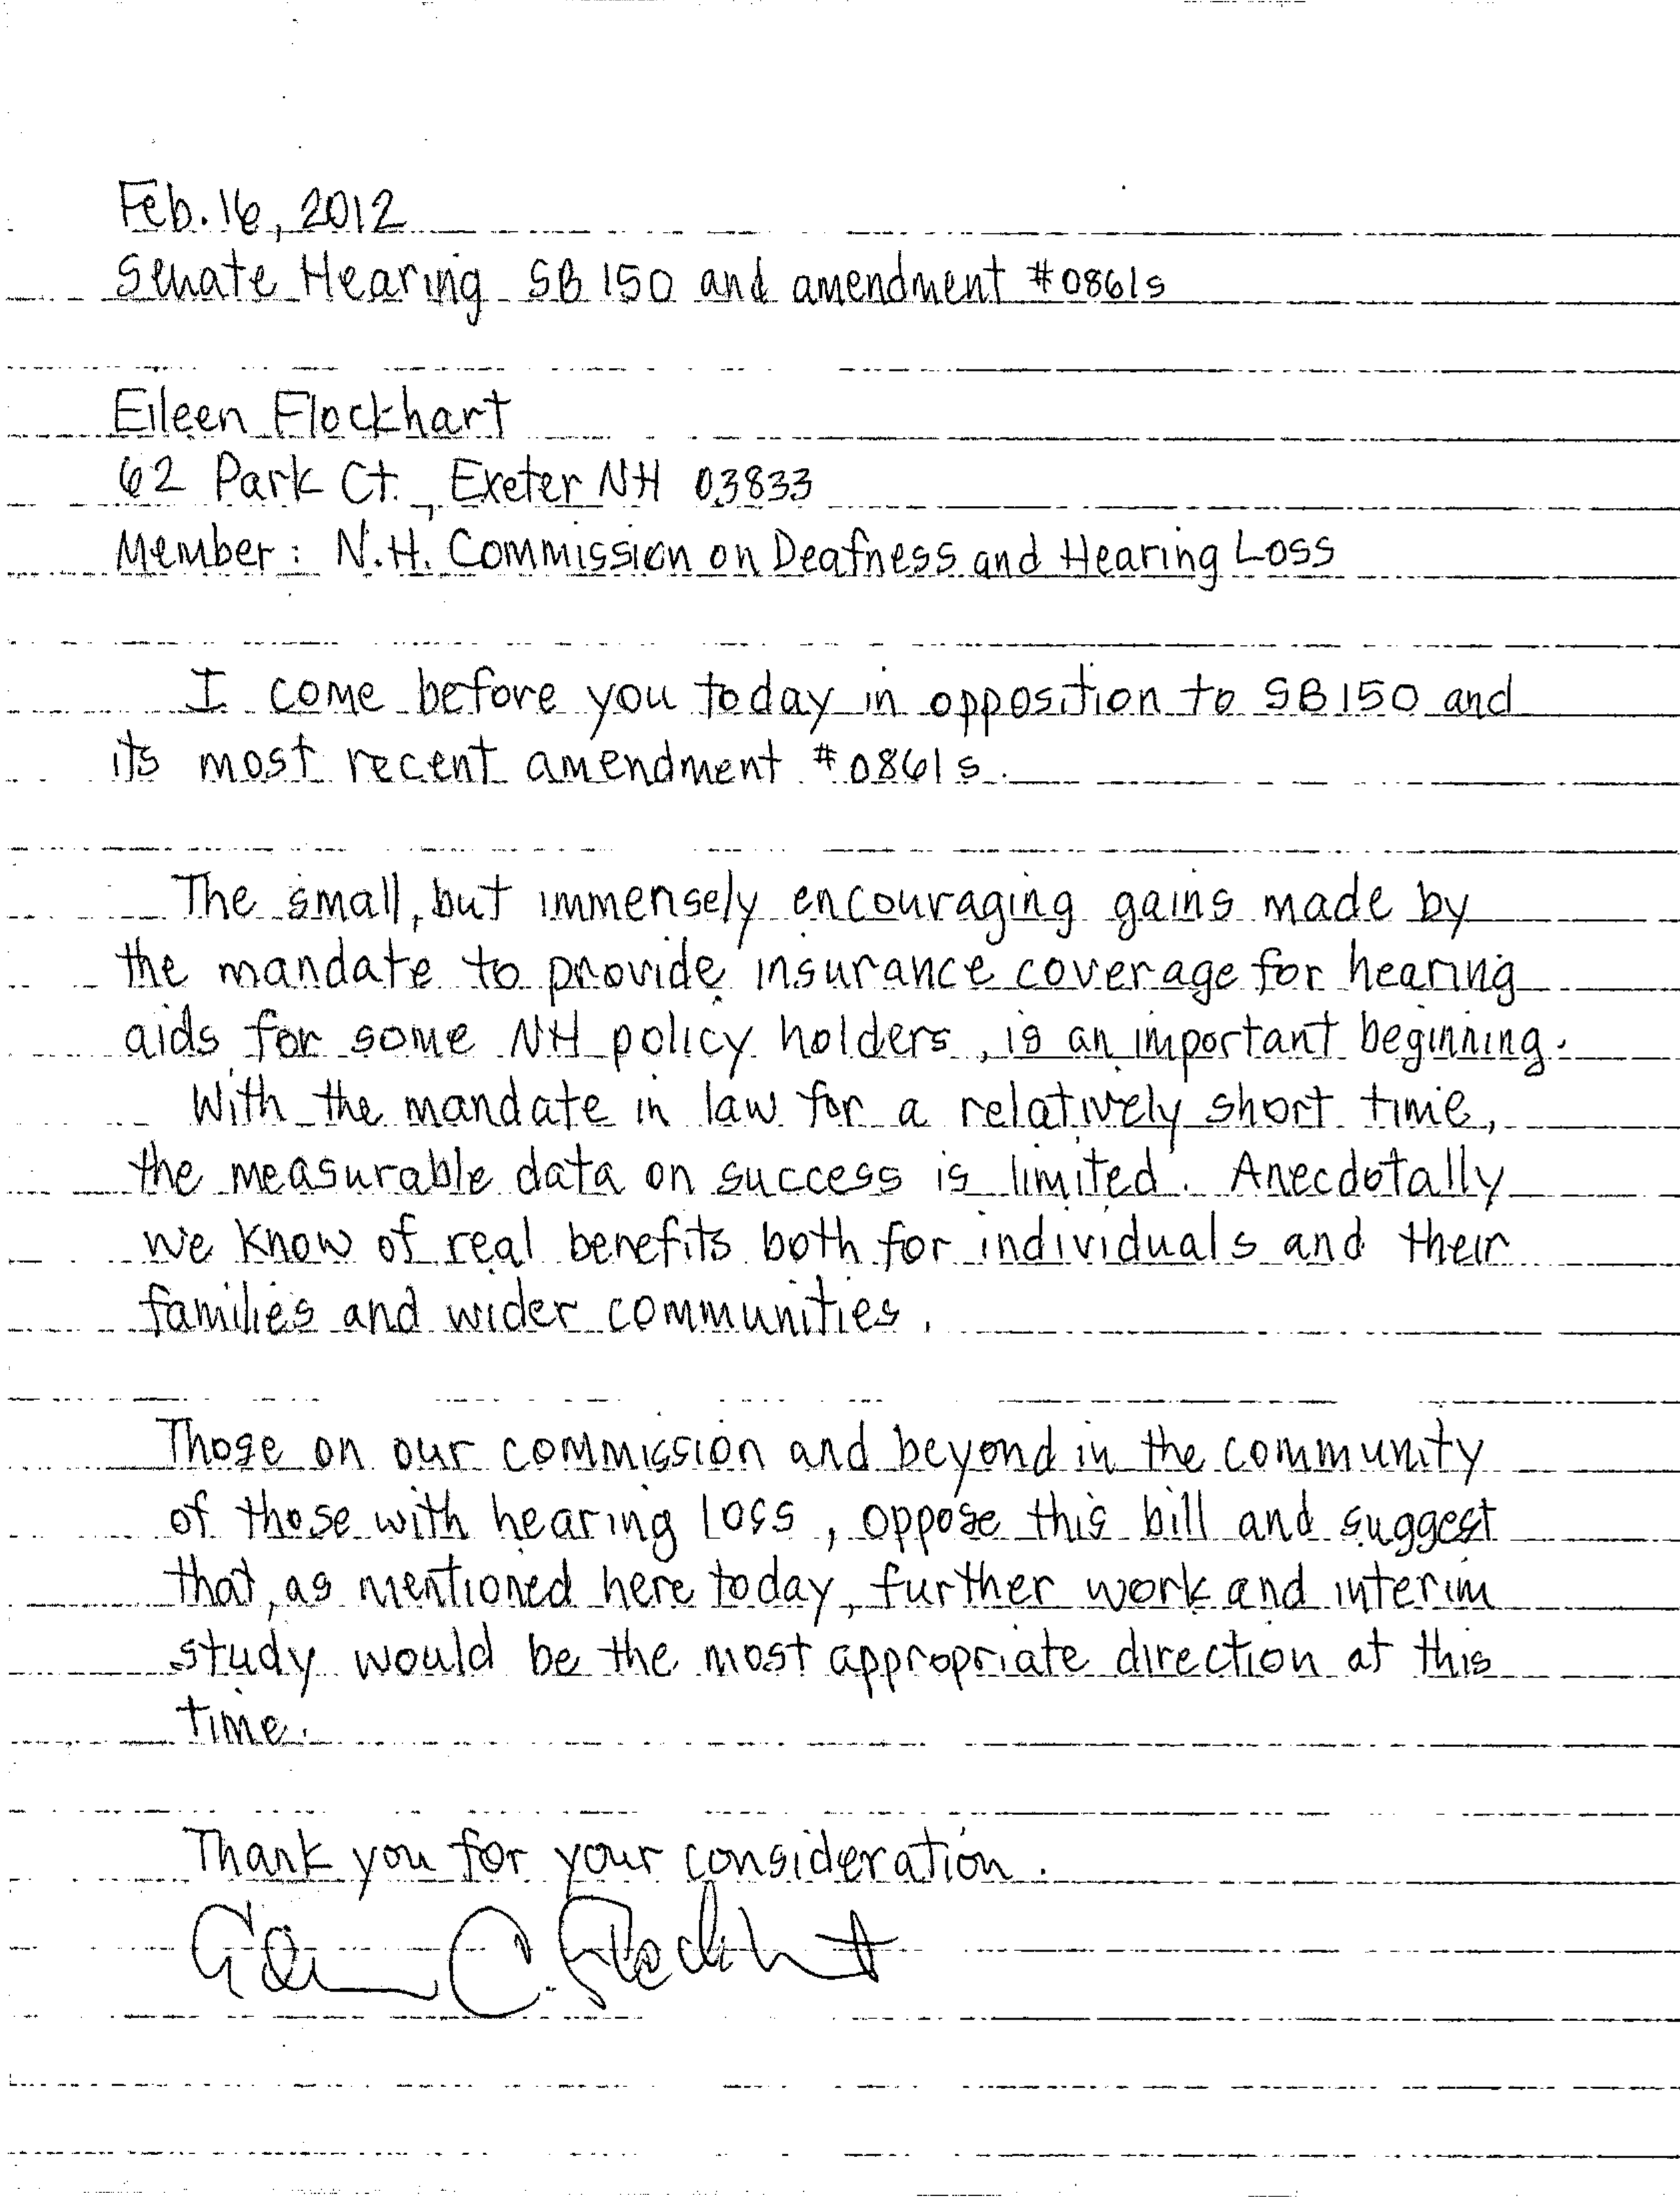 Feb. 16, 2012
Senate Hearing SB 150 and amendment #0861s
Eileen Flockhart
62 Park Ct., Exeter NH 03833
Member: N.H. Commission on Deafness and Hearing Loss
I come before you today in opposition to SB 150 and
its most recent amendment #0861s.
The small, but immensely encouraging gains made by
the mandate to provide insurance coverage for hearing
aids for some NH policy holders, is an important beginning.
With the mandate in law for a relatively short time,
the measurable data on success is limited. Anecdotally
we know of real benefits both for individuals and their
families and wider communities.
Those on our commission and beyond in the community
of those with hearing loss, oppose this bill and suggest
that, as mentioned here today, further work and interim
study would be the most appropriate direction at this
time.
Thank you for your consideration.
Eileen C. Flockhart